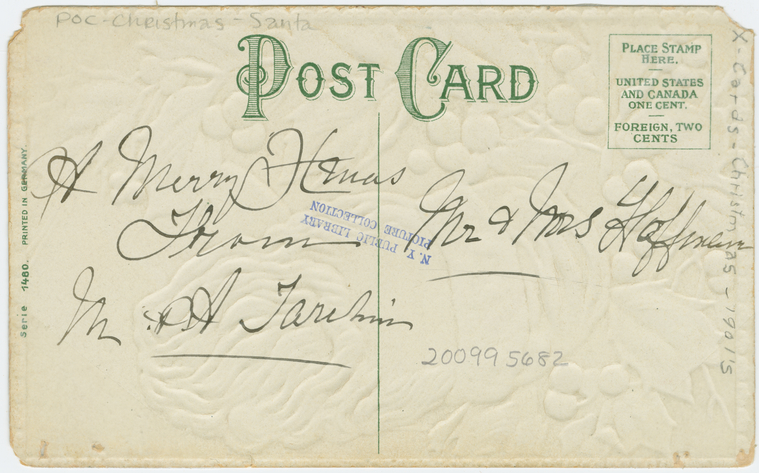 POC-Christmas-Santa
POST CARD
PLACE STAMP
HERE.
UNITED STATES
AND CANADA
ONE CENT.
FOREIGN, TWO
CENTS
X-Cards-Christmas-1901's
Serie 1480. PRINTED IN GERMANY.
A Merry Xmas
From
M & A
Mr & Mrs Hoffman
N. Y. PUBLIC LIBRARY
PICTURE COLLECTION
200995682